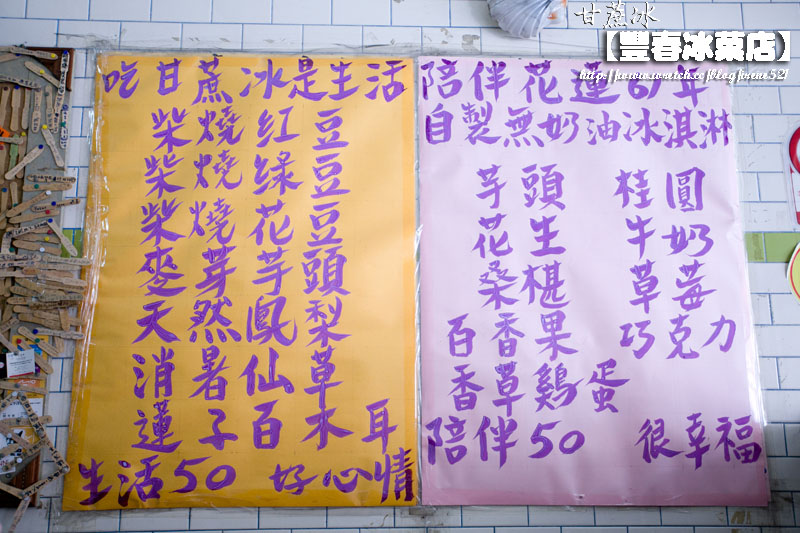 甘蔗冰
【豐春冰菓店】
http://www.wretch.cc/blog/irene521
吃甘蔗冰是生活
柴燒紅豆
柴燒綠豆
柴燒花豆
麥芽芋頭
天然鳳梨
消暑仙草
蓮子百木耳
生活50 好心情
陪伴花蓮67年
自製無奶油冰淇淋
芋頭 桂圓
花生 牛奶
桑椹 草莓
百香果 巧克力
香草雞蛋
陪伴50 很幸福